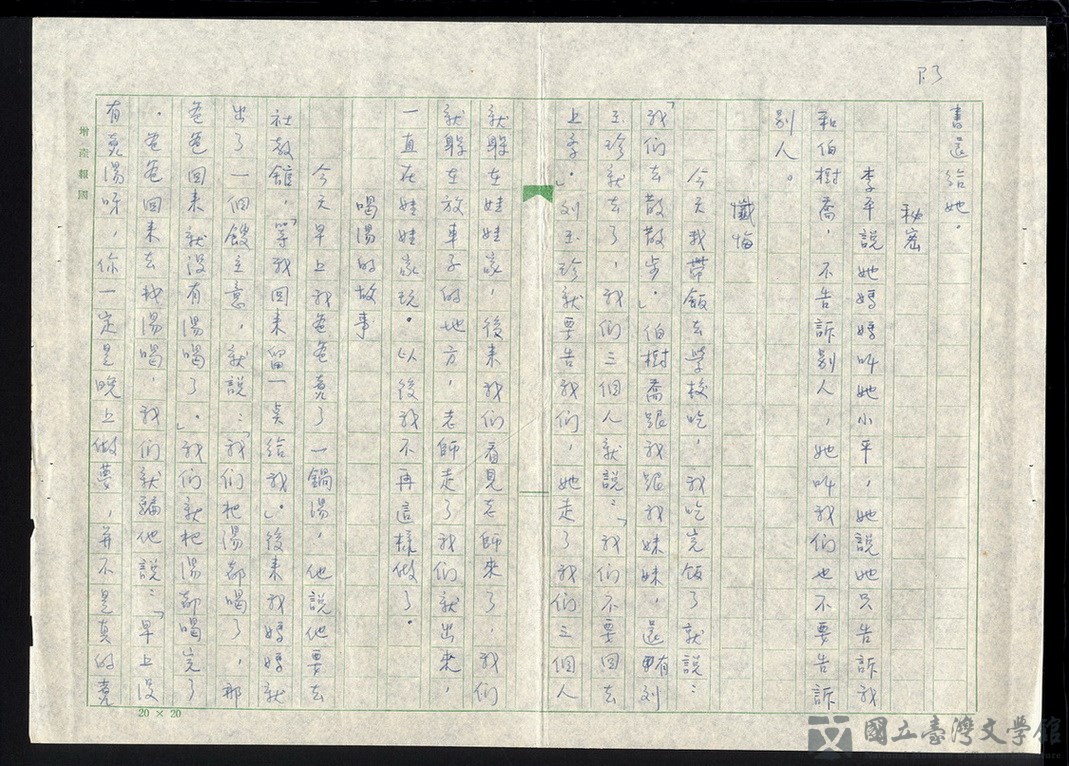 P.3
書還給她。
秘密
李平說她媽媽叫她小平，她說她只告訴我
和伯樹喬，不告訴別人，她叫我們也不要告訴
別人。
懺悔
今天我帶飯去學校吃，我吃完飯了就說：
「我們去散散步。」伯樹喬跟我跟我妹妹，還有刘
玉珍就去了，我們三個人就說：「我們不要回去
上学。」刘玉珍就要告我们，她走了我们三個人
就躲在娃娃家，後来我们看見老師來了，我們
就躲在放車子的地方，老師走了我们就出來，
一直在娃娃家玩。以後我不再這樣做了。
喝湯的故事
今天早上我爸爸煮了一鍋湯，他說他要去
社教館，「等我回來留一点給我」。後来我媽媽就
出了一個餿主意，就說：「我们把湯都喝了，那
爸爸回来就没有湯喝了。」我们就把湯都喝完了
。爸爸回来去找湯喝，我们就騙他說：「早上没
有煮湯呀，你一定是晚上做夢，并不是真的煮
增產報國
20 × 20
國立臺灣文學館